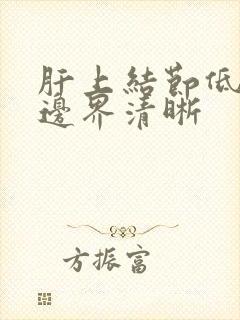 肝上結節低
邊界清晰
方振富